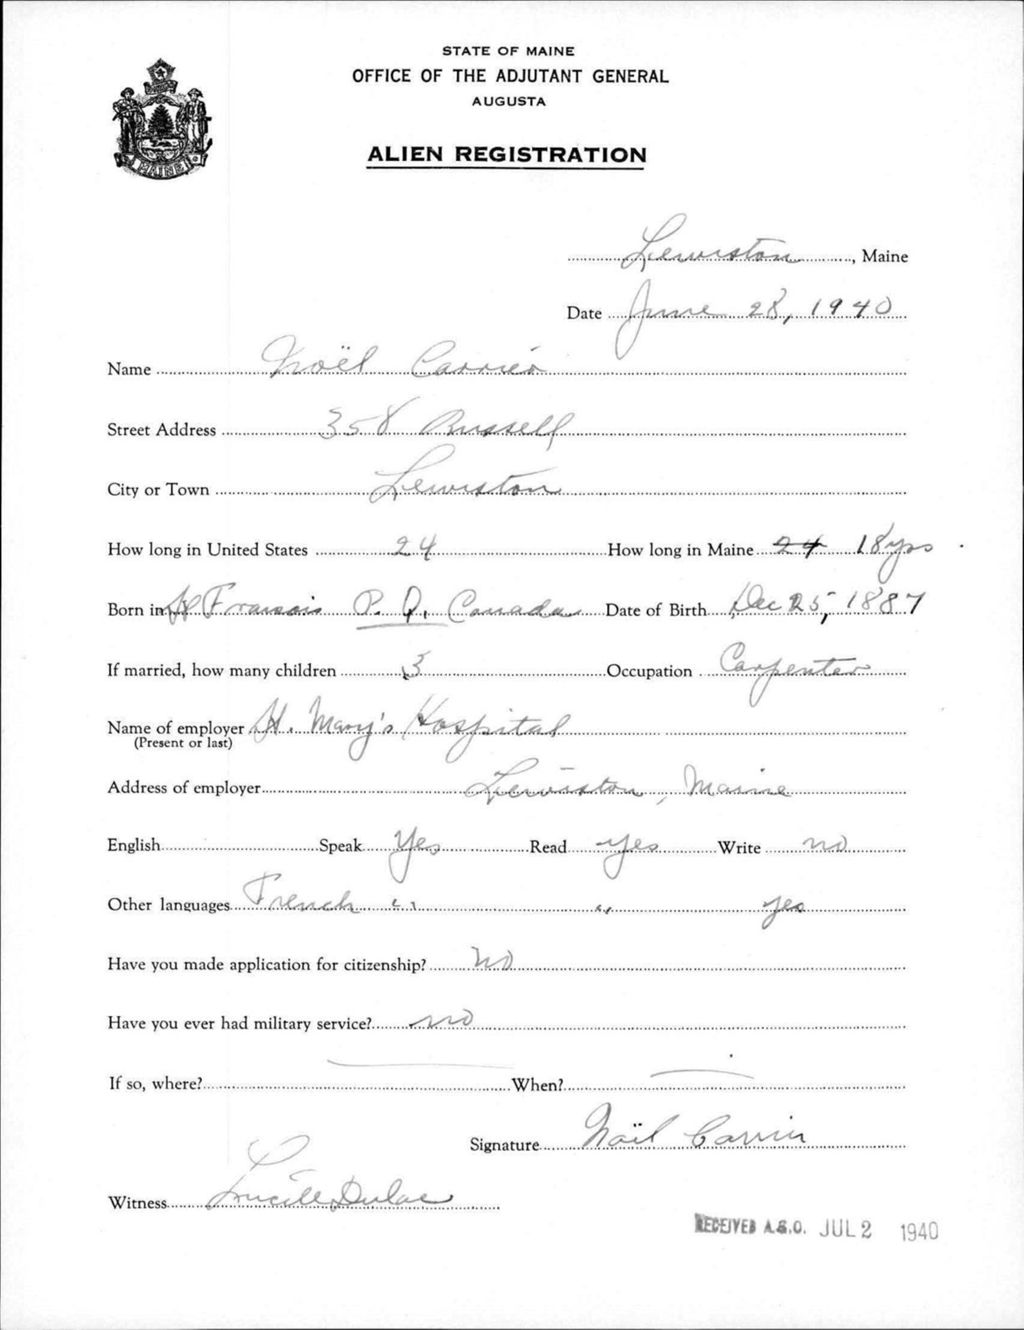 STATE OF MAINE
OFFICE OF THE ADJUTANT GENERAL
AUGUSTA
ALIEN REGISTRATION
MAINE
Lewiston, Maine
Date June 28, 1940
Name Noël Carrier
Street Address 358 Russell
City or Town Lewiston
How long in United States 24 How long in Maine 24 18 yrs
Born in St Francois P. Q. Canada Date of Birth Dec 25, 1887
If married, how many children 3 Occupation Carpenter
Name of employer St. Mary's Hospital
(Present or last)
Address of employer Lewiston, Maine
English Speak Yes Read yes Write no
Other languages French " " yes
Have you made application for citizenship? No
Have you ever had military service? no
If so, where? — When? —
Signature Noël Carrier
Witness Lucille Dulac
RECEIVED A.G.O. JUL 2 1940